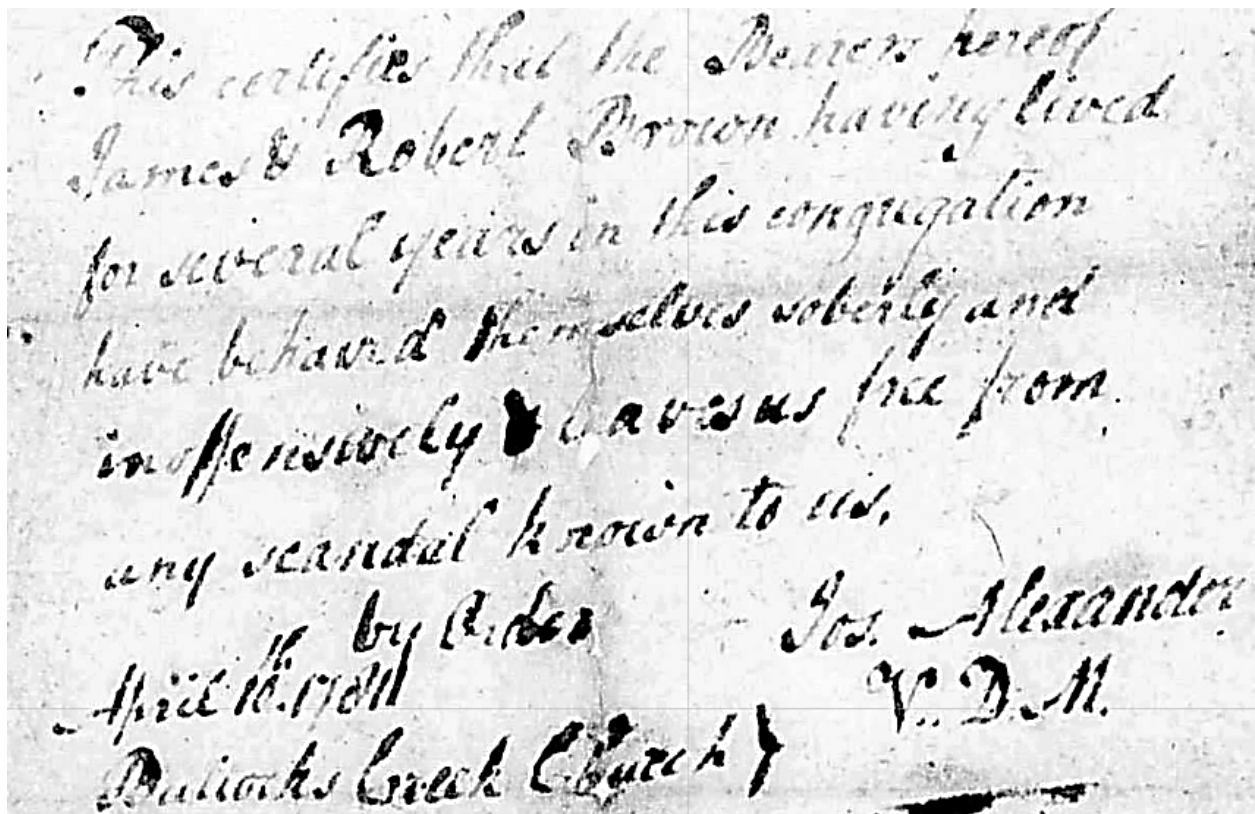 This certifies that the Bearers hereof
James & Robert Brown having lived
for several years in this congregation
have behaved themselves soberly and
inoffensively & leaves us free from
any scandal known to us.
by Order Jos. Alexander
April 10th. V.. D. M.
Bullocks Creek Church }